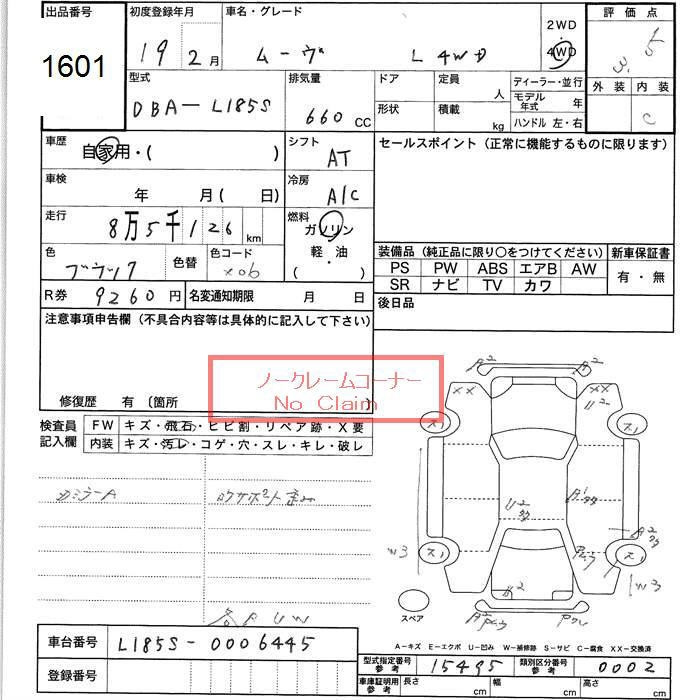 出品番号 初度登録年月 車名・グレード 2WD 評価点
1601 19年 2月 ムーヴ L 4WD 4WD 3.5
型式 排気量 ドア 定員 ディーラー・並行 外装 内装
DBA-L185S 660 CC 形状 積載 人 モデル年式 年 C
kg ハンドル 左・右
車歴 シフト セールスポイント（正常に機能するものに限ります）
自家用・( ) AT
車検 冷房
年 月( 日) A/C
走行 燃料
8万5千126 km ガソリン
色 色替 色コード 軽・油 装備品（純正品に限り○をつけてください） 新車保証書
X06 ( ) PS PW ABS エアB AW 有・無
R券 9260円 名変通知期限 月 日 SR ナビ TV カワ
後日品
注意事項申告欄（不具合内容等は具体的に記入して下さい）
ノークレームコーナー
No Claim
修復歴 有 〔箇所
検査員 FW キズ・飛石・ヒビ割・リペア跡・X要
記入欄 内装 キズ・汚レ・コゲ・穴・スレ・キレ・破レ
A2 A2
XX XX
U2
スリ スリ
U2 A1
A2
W3 スリ スリ
W3
スペア
車台番号 L185S-0006445
A-キズ E-エクボ U-凹み W-補修跡 S-サビ C-腐食 XX-交換済
登録番号 型式指定番号 参考 15495 類別区分番号 参考 0002
車庫証明用 参考 長さ cm 幅 cm 高さ cm